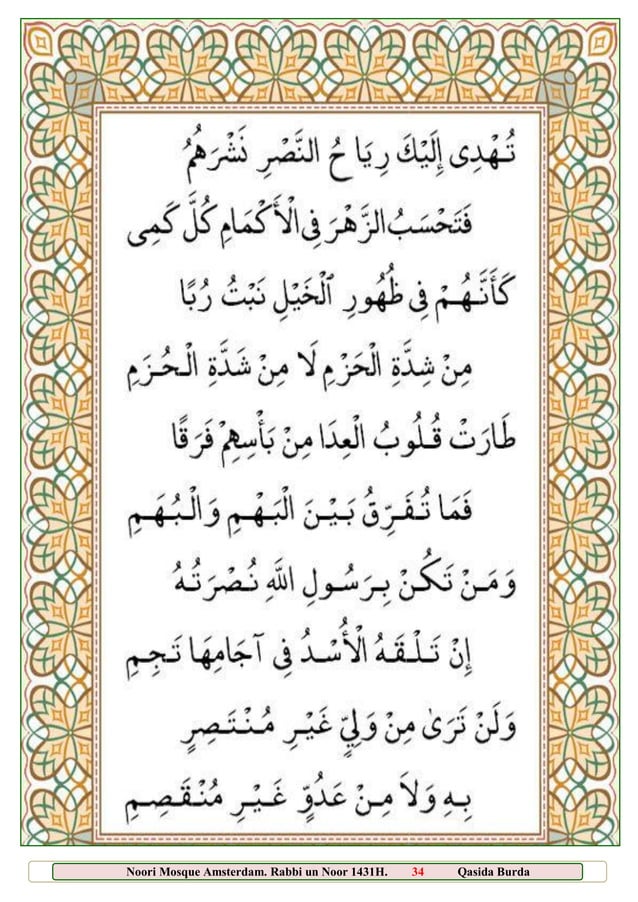 تُهْدِى إِلَيْكَ رِيَا حُ النَّصْرِ نَشْرَهُمُ
فَتَحْسَبُ الزَّهْرَ فِى الْأَكْمَامِ كُلَّ كَمِى
كَأَنَّهُمْ فِى ظُهُورِ ٱلْخَيْلِ نَبْتُ رُبًا
مِنْ شِدَّةِ الْحَزْمِ لَا مِنْ شَدَّةِ الْحُزَمِ
طَارَتْ قُلُوبُ الْعِدَا مِنْ بَأْسِهِمْ فَرَقًا
فَمَا تُفَرِّقُ بَيْنَ الْبَهْمِ وَالْبُهَمِ
وَمَنْ تَكُنْ بِرَسُولِ اللَّهِ نُصْرَتُهُ
إِنْ تَلْقَهُ الْأُسْدُ فِى آجَامِهَا تَجِمِ
وَلَنْ تَرَىٰ مِنْ وَلِيٍّ غَيْرِ مُنْتَصِرٍ
بِهِ وَلَا مِنْ عَدُوٍّ غَيْرِ مُنْقَصِمِ
Noori Mosque Amsterdam. Rabbi un Noor 1431H. 34 Qasida Burda